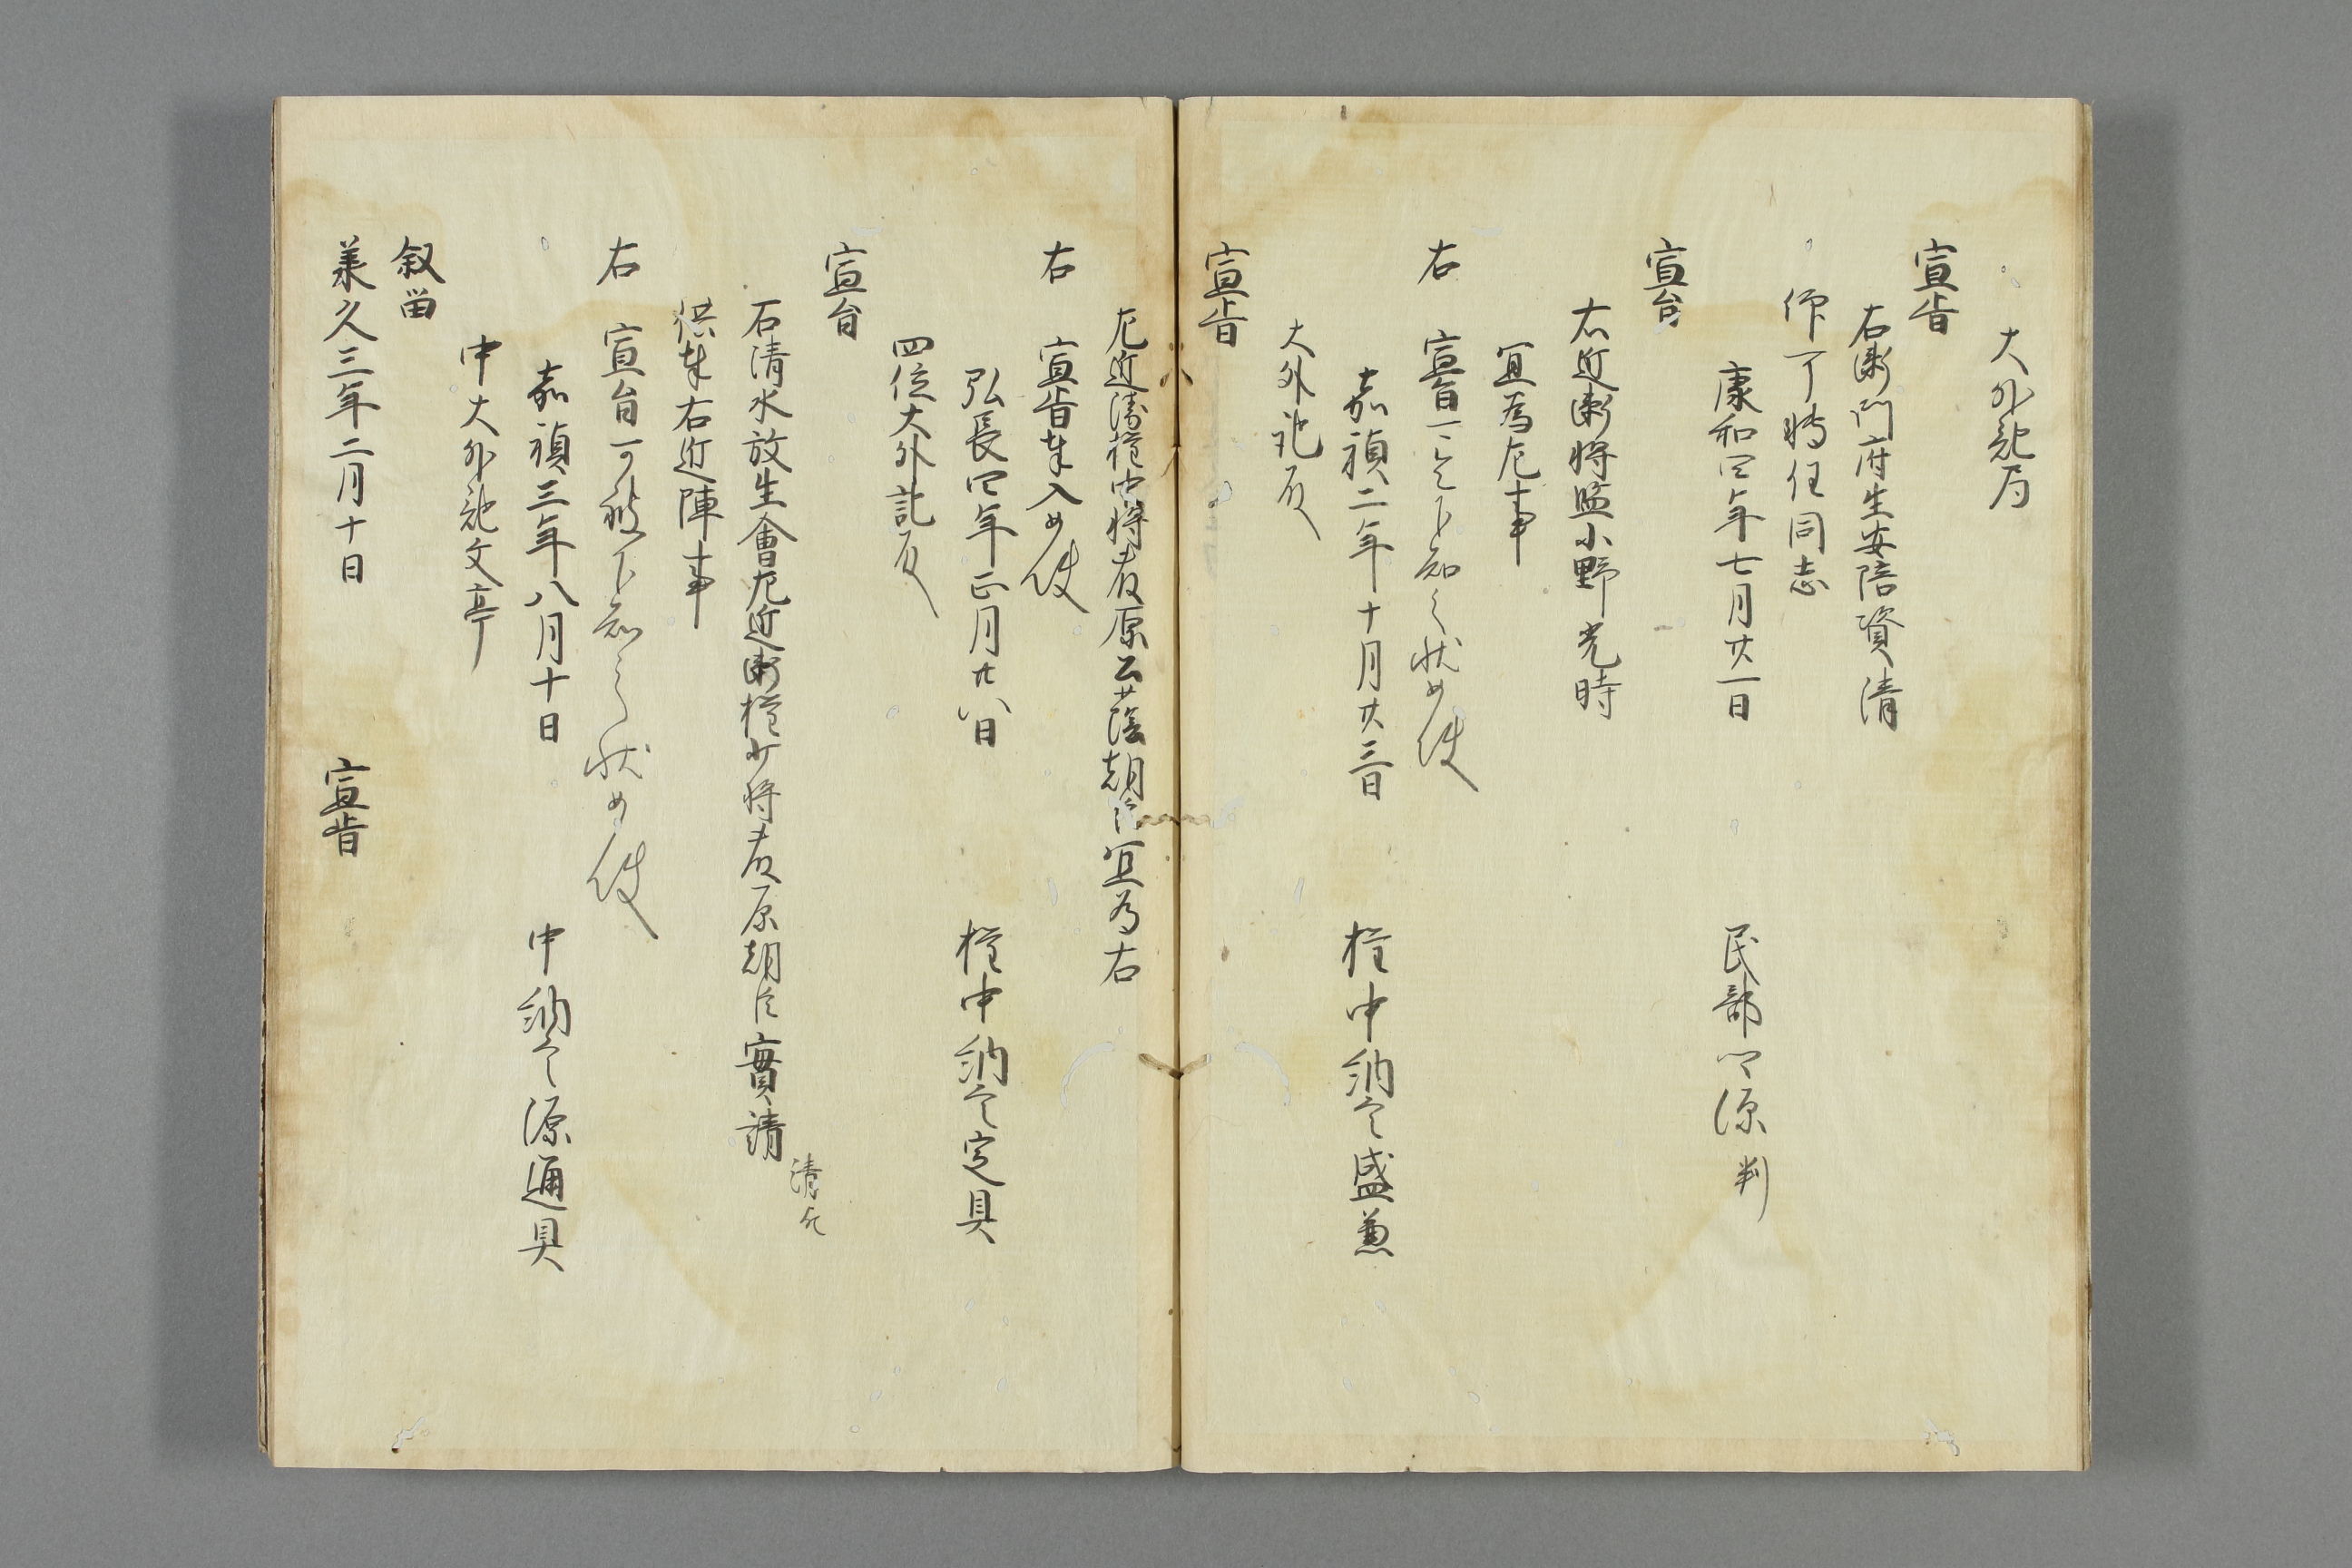 大外記局
宣旨
右衛門府生安陪資清
仰可転任同志
康和四年七月廿一日 民部卿源判
宣旨
右近衛将監小野光時
宜為左事
右 宣旨可令下知之状如件
嘉禎二年十月廿三日 権中納言盛兼
大外記殿
宣旨
左近衛権中将藤原公蔭朝臣宜為右
右 宣旨奉入如件
弘長四年正月廿八日 権中納言定具
四位大外記殿
宣旨
石清水放生會左近衛権少将藤原朝臣實清
清
供奉右近陣事
右 宣旨可被下知之状如件
嘉禎三年八月十日 中納言源通具
中大外記文亭
叙留
承久三年二月十日 宣旨